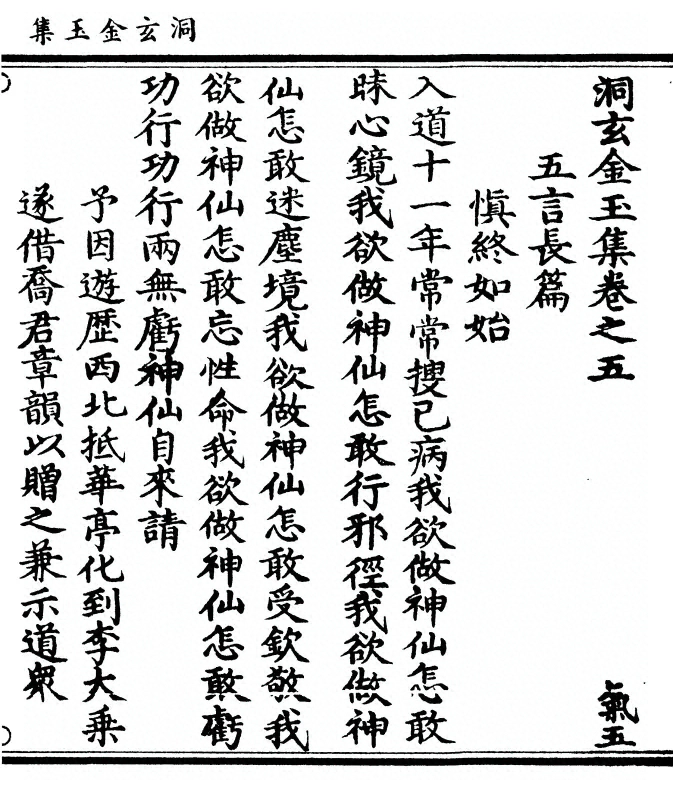 洞玄金玉集
洞玄金玉集卷之五
氣五
五言長篇
慎終如始
入道十一年常常搜已病我欲做神仙怎敢
昧心鏡我欲做神仙怎敢行邪徑我欲做神
仙怎敢迷塵境我欲做神仙怎敢受欽敬我
欲做神仙怎敢忘性命我欲做神仙怎敢虧
功行功行兩無虧神仙自來請
予因遊歷西北抵華亭化到李大乘
遂借喬君章韻以贈之兼示道眾